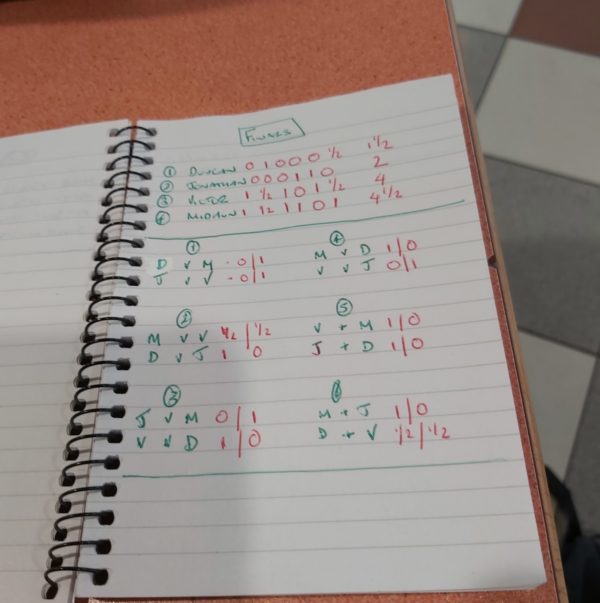 FINALS
① DUNCAN 0 1 0 0 0 ½ 1½
② JONATHAN 0 0 0 1 1 0 2
③ VICTOR 1 ½ 1 0 1 ½ 4
④ 1 ½ 1 1 0 1 4½
①
D v M - 0|1
J v V - 0|1
②
M v V ½|½
D v J 1 0
③
J v M 0|1
V v D 1|0
④
M v D 1|0
V v J 0|1
⑤
V + M 1|0
J + D 1|0
⑥
M + J 1|0
D + V ½|½